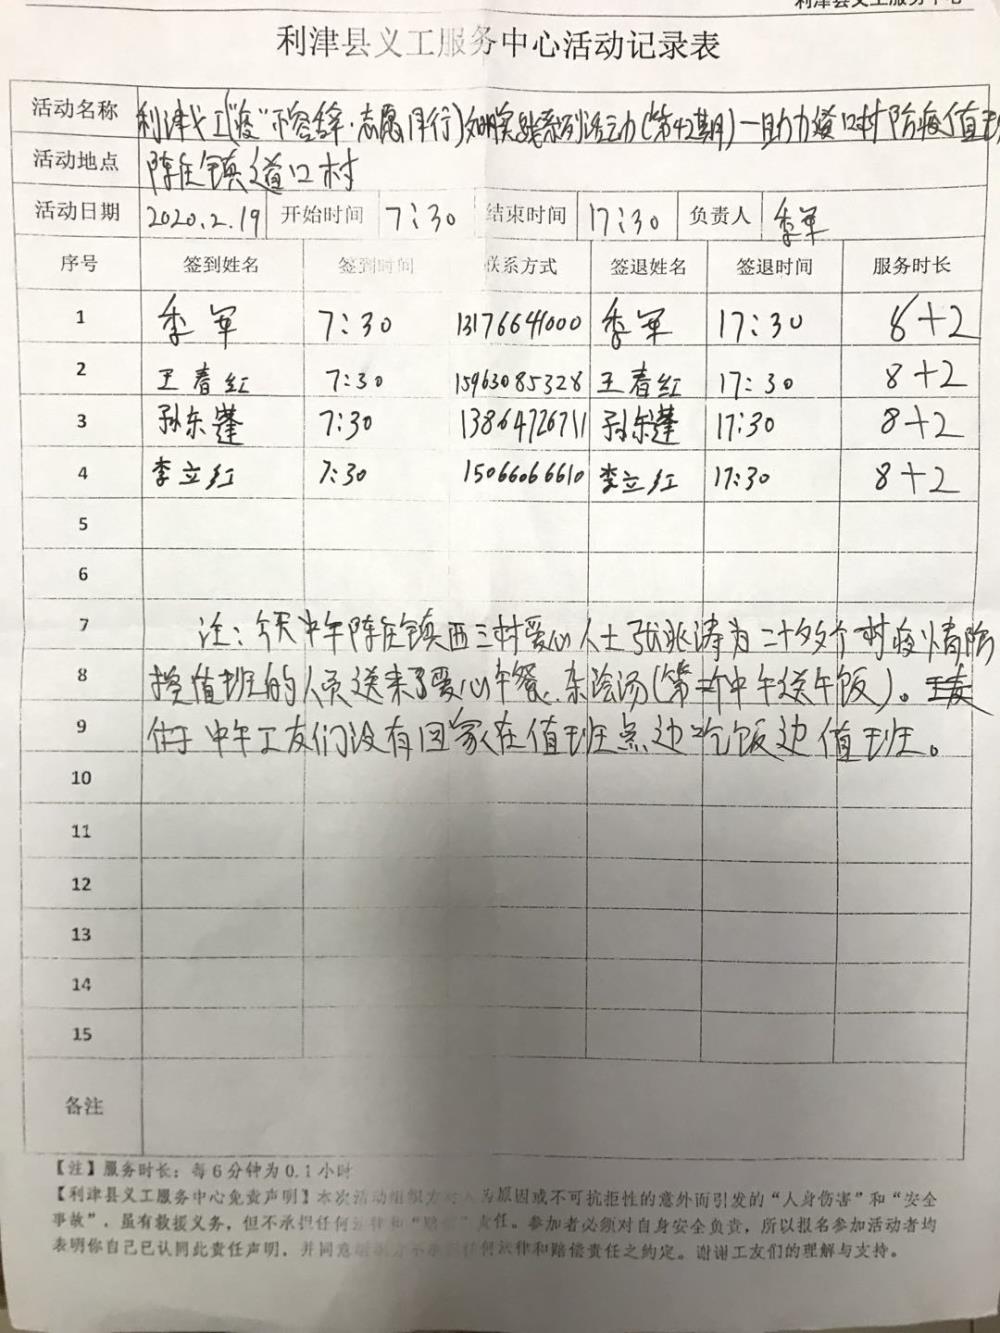 利津县义工服务中心
利津县义工服务中心活动记录表
活动名称 利津义工("疫"不容辞·志愿同行)系列活动(第42期)—助力道口村防疫值班
活动地点 陈庄镇道口村
活动日期 2020.2.19 开始时间 7:30 结束时间 17:30 负责人 季军
序号 签到姓名 签到时间 联系方式 签退姓名 签退时间 服务时长
1 季军 7:30 13176641000 季军 17:30 8+2
2 王春红 7:30 15963085328 王春红 17:30 8+2
3 孙东蓬 7:30 13864726711 孙东蓬 17:30 8+2
4 李立红 7:30 15066066610 李立红 17:30 8+2
5
6
7 注:今天中午陈庄镇西三村爱心人士张兆涛为二十多个村疫情防
8 控值班的人员送来了爱心午餐、(第 中午送午饭)。
9 由于中午工友们没有回家在值班点边吃饭边值班。
10
11
12
13
14
15
备注
【注】服务时长:每6分钟为0.1小时
【利津县义工服务中心免责声明】本次活动组织方对人为原因或不可抗拒性的意外而引发的“人身伤害”和“安全
事故”,虽有救援义务,但不承担任何法律和“赔偿”责任。参加者必须对自身安全负责,所以报名参加活动者均
表明你自己已认同此责任声明,并同意组织方不承担任何法律和赔偿责任之约定。谢谢工友们的理解与支持。